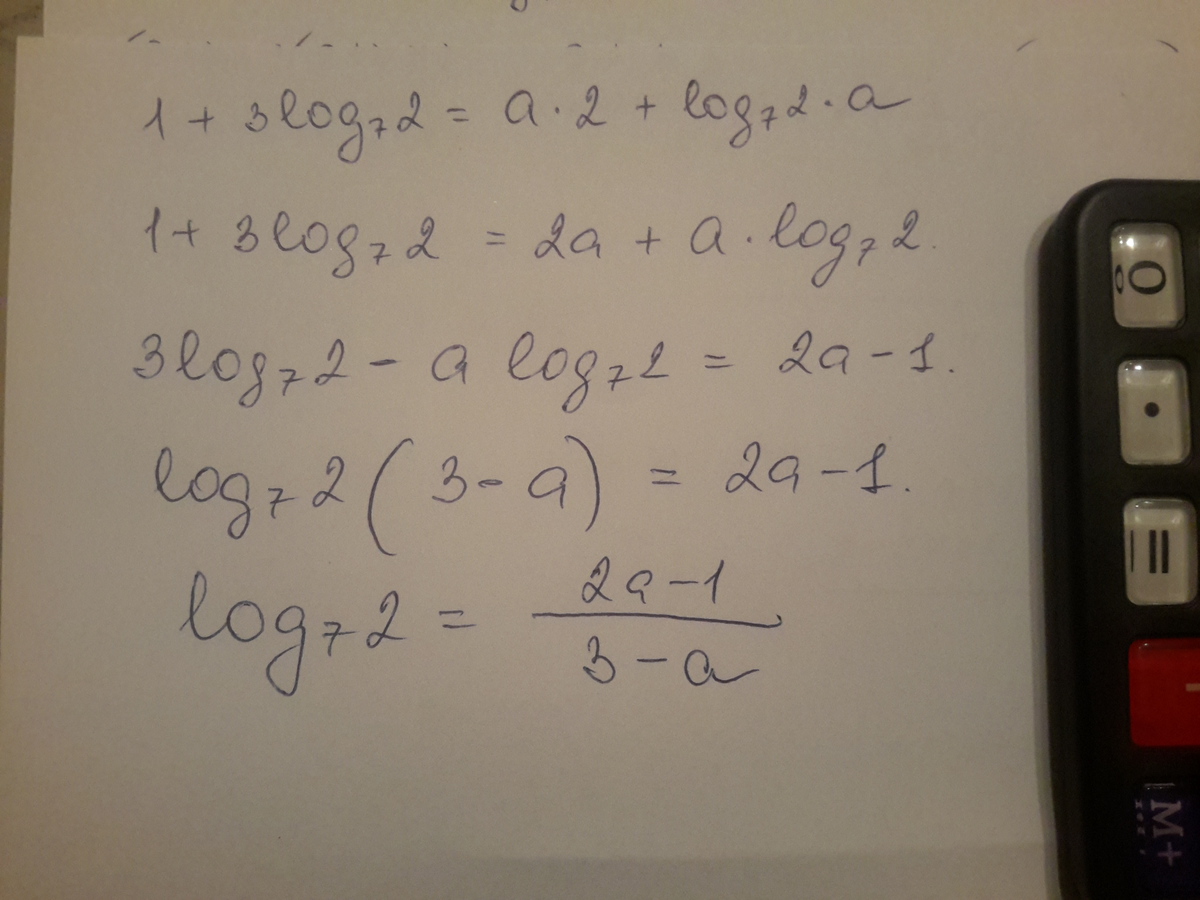 1 + 3log₇2 = a·2 + log₇2·a
1 + 3log₇2 = 2a + a·log₇2.
3log₇2 - a log₇2 = 2a - 1.
log₇2 (3 - a) = 2a - 1.
log₇2 = (2a - 1)/(3 - a)
0
·
=
M+